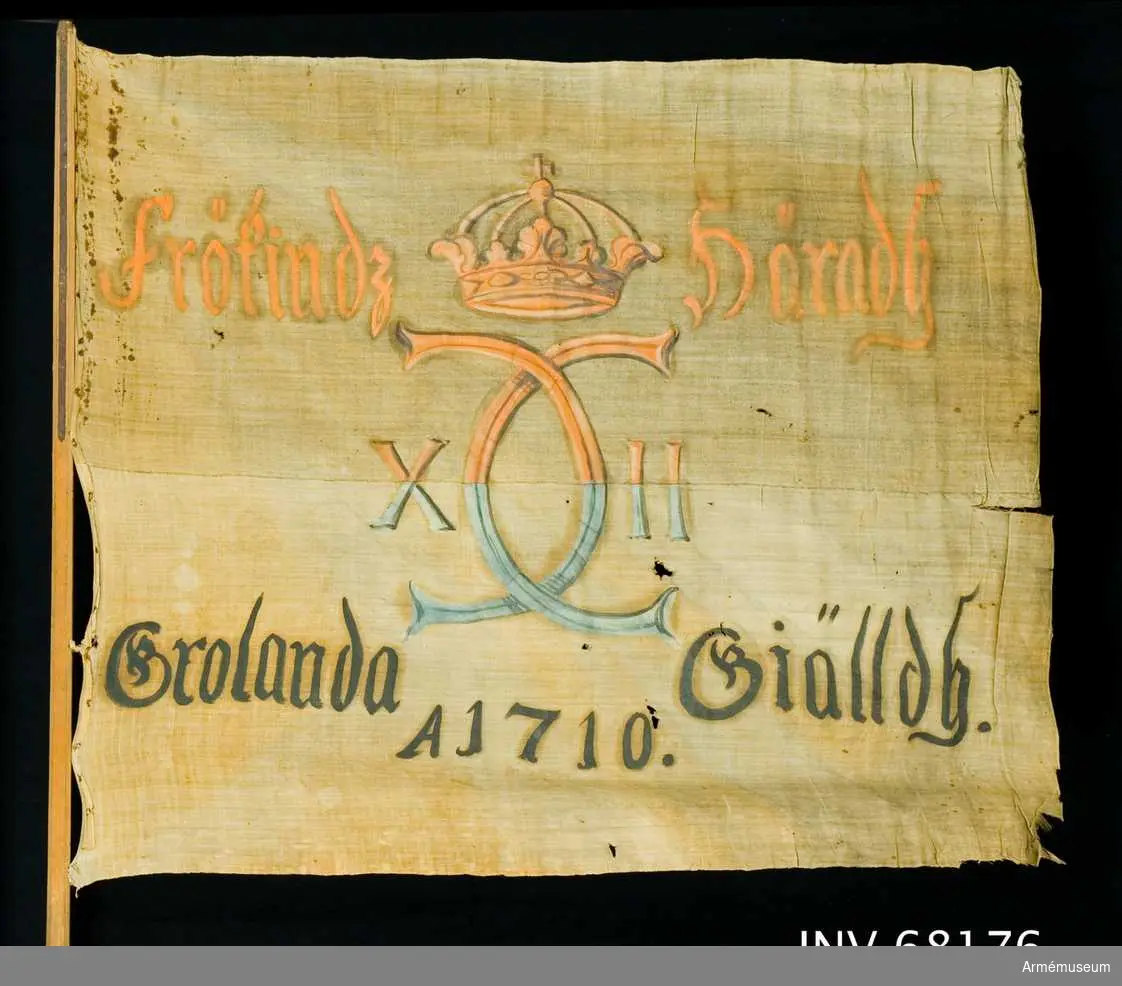 Frökindz Häradh
X II
Grolanda Giälldh.
A 1710.
INV 68176
Armémuseum